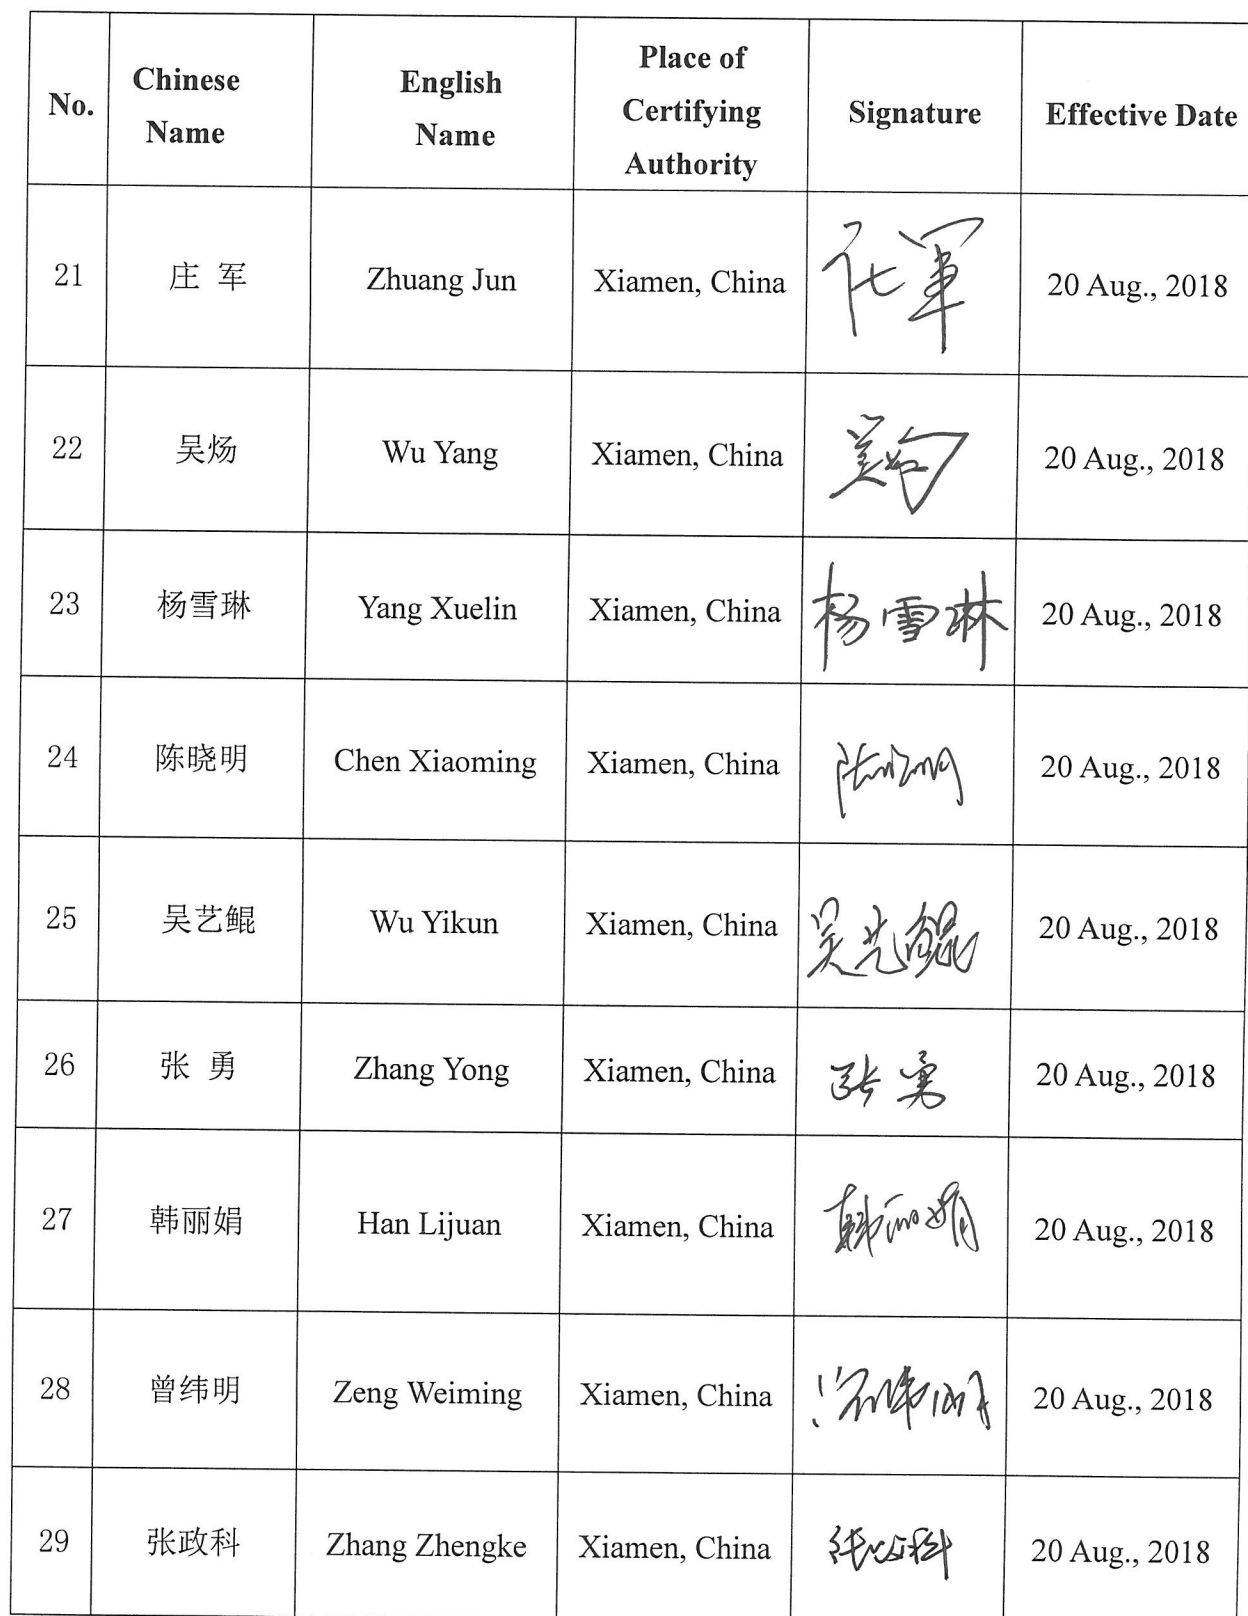 No.
Chinese
Name
English
Name
Place of
Certifying
Authority
Signature
Effective Date
21
庄 军
Zhuang Jun
Xiamen, China
庄军
20 Aug., 2018
22
吴炀
Wu Yang
Xiamen, China
20 Aug., 2018
23
杨雪琳
Yang Xuelin
Xiamen, China
杨雪琳
20 Aug., 2018
24
陈晓明
Chen Xiaoming
Xiamen, China
陈晓明
20 Aug., 2018
25
吴艺鲲
Wu Yikun
Xiamen, China
吴艺鲲
20 Aug., 2018
26
张 勇
Zhang Yong
Xiamen, China
张勇
20 Aug., 2018
27
韩丽娟
Han Lijuan
Xiamen, China
韩丽娟
20 Aug., 2018
28
曾纬明
Zeng Weiming
Xiamen, China
曾纬明
20 Aug., 2018
29
张政科
Zhang Zhengke
Xiamen, China
张政科
20 Aug., 2018